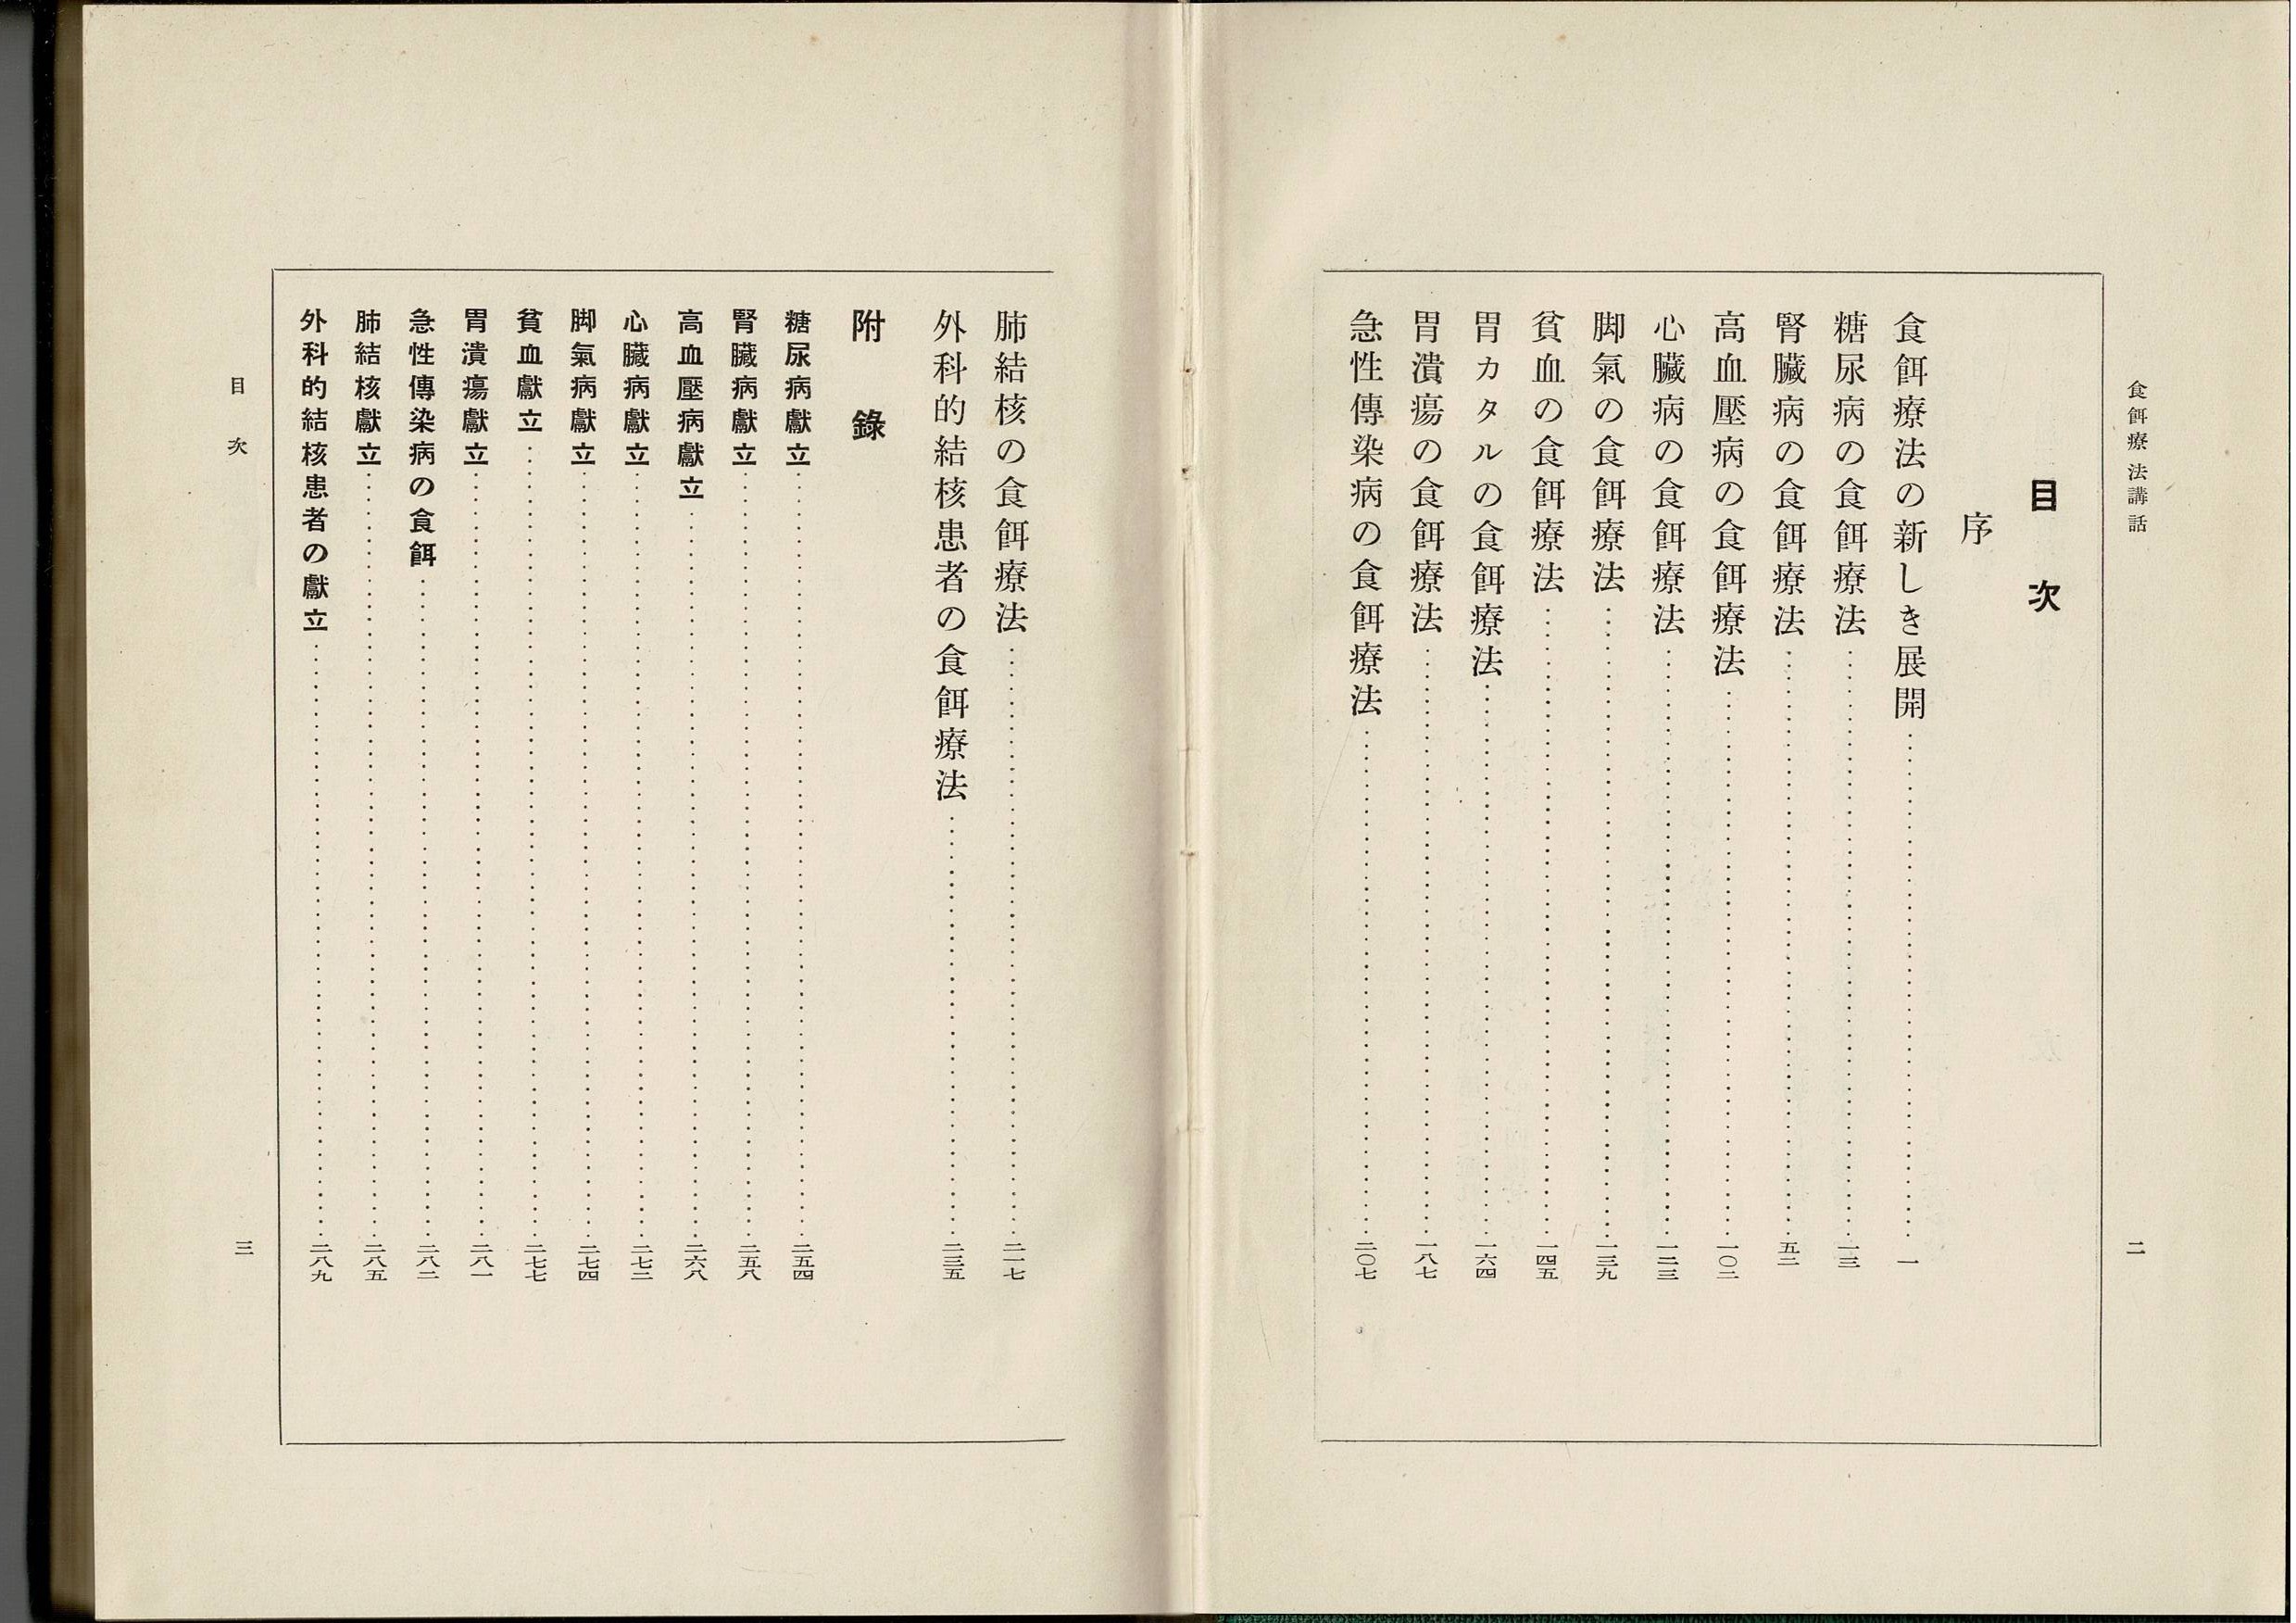 食餌療法講話
二
目次
序
食餌療法の新しき展開……一
糖尿病の食餌療法……一三
腎臟病の食餌療法……五二
高血壓病の食餌療法……一〇二
心臟病の食餌療法……一二三
脚氣の食餌療法……一三九
貧血の食餌療法……一四五
胃カタルの食餌療法……一六四
胃潰瘍の食餌療法……一八七
急性傳染病の食餌療法……二〇七
肺結核の食餌療法……二一七
外科的結核患者の食餌療法……二三五
附錄
糖尿病獻立……二五四
腎臟病獻立……二五八
高血壓病獻立……二六八
心臟病獻立……二七二
脚氣病獻立……二七四
貧血獻立……二七七
胃潰瘍獻立……二八一
急性傳染病の食餌……二八二
肺結核獻立……二八五
外科的結核患者の獻立……二八九
目次
三